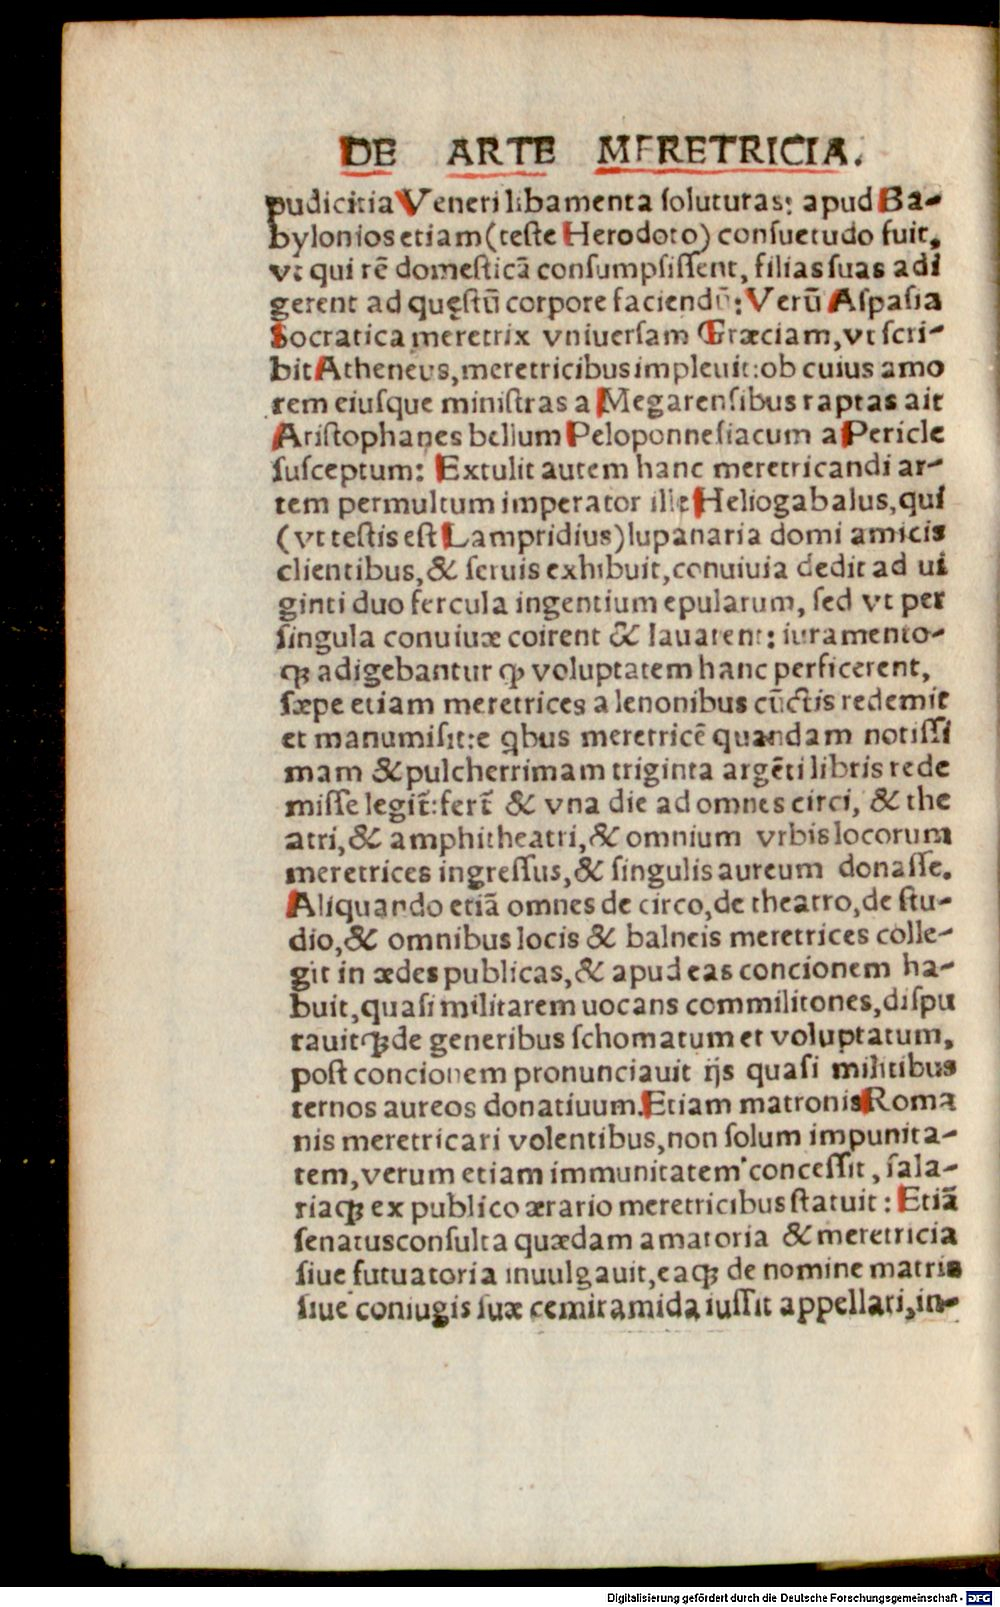 DE ARTE MERETRICIA.
pudicitia Veneri libamenta ſoluturas: apud Ba-
bylonios etiam (teſte Herodoto) conſuetudo fuit,
vt qui rē domeſticā conſumpſiſſent, filias ſuas adi
gerent ad quęſtū corpore faciendū: Verū Aſpaſia
Socratica meretrix vniuerſam Græciam, vt ſcri-
bit Atheneus, meretricibus impleuit: ob cuius amo
rem eiuſque miniſtras a Megarenſibus raptas ait
Ariſtophanes bellum Peloponneſiacum a Pericle
ſuſceptum: Extulit autem hanc meretricandi ar-
tem permultum imperator ille Heliogabalus, qui
(vt teſtis eſt Lampridius) lupanaria domi amicis
clientibus, & ſeruis exhibuit, conuiuia dedit ad ui
ginti duo fercula ingentium epularum, ſed vt per
ſingula conuiuæ coirent & lauarent: iuramento-
qꝫ adigebantur ꝙ voluptatem hanc perficerent,
ſæpe etiam meretrices a lenonibus cūctis redemit
et manumiſit: e qbus meretricē quandam notiſſi
mam & pulcherrimam triginta argēti libris rede
miſſe legit̃: fert̃ & vna die ad omnes circi, & the
atri, & amphitheatri, & omnium vrbis locorum
meretrices ingreſſus, & ſingulis aureum donaſſe.
Aliquando etiā omnes de circo, de theatro, de ſtu-
dio, & omnibus locis & balneis meretrices colle-
git in ædes publicas, & apud eas concionem ha-
buit, quaſi militarem uocans commilitones, diſpu
tauitqꝫ de generibus ſchomatum et voluptatum,
poſt concionem pronunciauit ijs quaſi militibus
ternos aureos donatiuum. Etiam matronis Roma
nis meretricari volentibus, non ſolum impunita-
tem, verum etiam immunitatem conceſſit, ſala-
riaqꝫ ex publico ærario meretricibus ſtatuit: Etiā
ſenatusconſulta quædam amatoria & meretricia
ſiue futuatoria inuulgauit, eaqꝫ de nomine matris
ſiue coniugis ſuæ cemiramida iuſſit appellari, in-
Digitalisierung gefördert durch die Deutsche Forschungsgemeinschaft - DFG